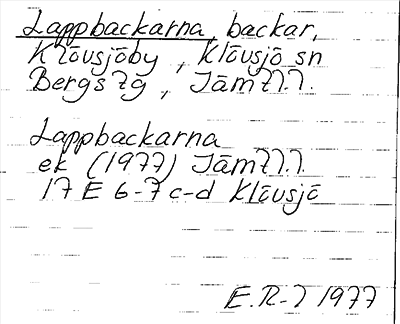 Lappbackarna, backar,
Klövsjöby, Klövsjö sn
Bergs tg, Jämtl.l.
Lappbackarna
ek (1977) Jämtl.l.
17 E 6-7 c-d Klövsjö
E.R-l 1977